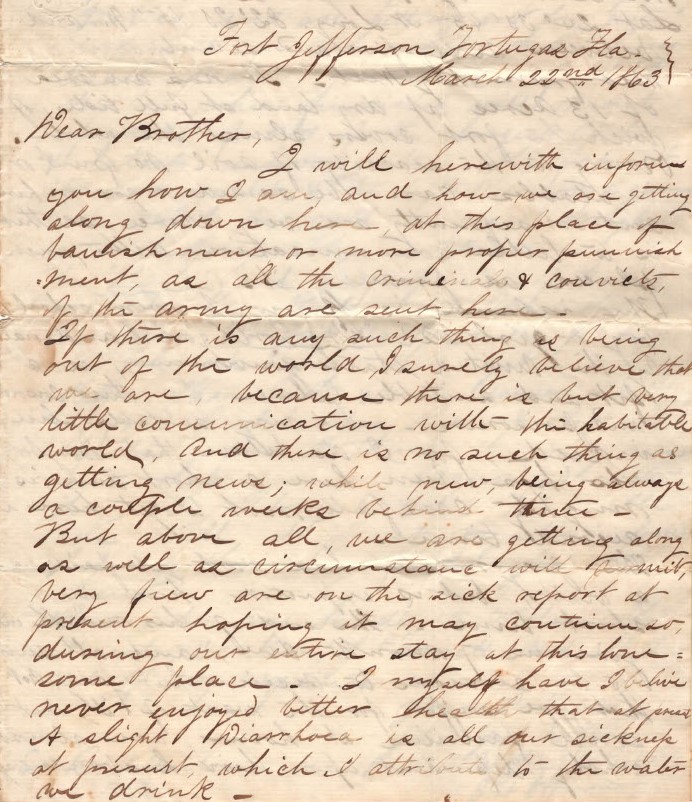 Fort Jefferson Tortugas Fla.
March 22nd 1863
Dear Brother,
I will herewith inform
you how I am, and how we are getting
along down here, at this place of
banishment or more proper punnish
=ment, as all the criminals & convicts,
of the army are sent here -
If there is any such thing as being
out of the world, I surely believe that
we are, because there is but very
little communication with the habitable
world, And there is no such thing as
getting news; while new, being always
a couple weeks behind time -
But above all, we are getting along
as well as circumstanc will permit,
very fiew are on the sick report at
present hoping it may continu so,
dureing our entire stay at this lone=
some place - I myself have I belive
never enjoyed better health that at pres
A slight Diarrhoea is all our sickness
at present, which I attribute to the water
we drink -